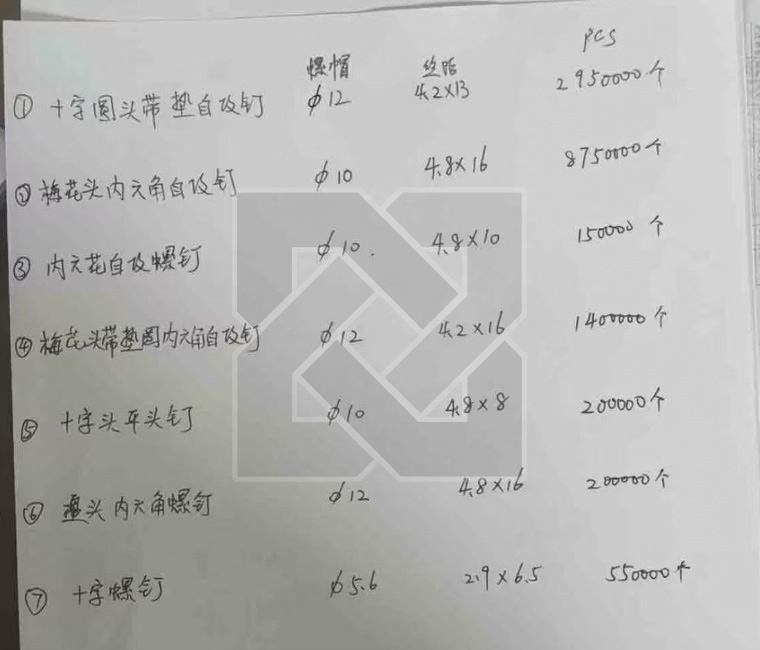 PCS
螺帽 丝后
① 十字圆头带垫自攻钉 ϕ12 4.2×13 2950000个
② 梅花头内六角自攻钉 ϕ10 4.8×16 8750000个
③ 内六花自攻螺钉 ϕ10. 4.8×10 150000个
④ 梅花头带垫圆内六角自攻钉 ϕ12 4.2×16 1400000个
⑤ 十字头平头钉 ϕ10 4.8×8 200000个
⑥ 头内六角螺钉 ϕ12 4.8×16 200000个
⑦ 十字螺钉 ϕ5.6 2.9×6.5 550000个